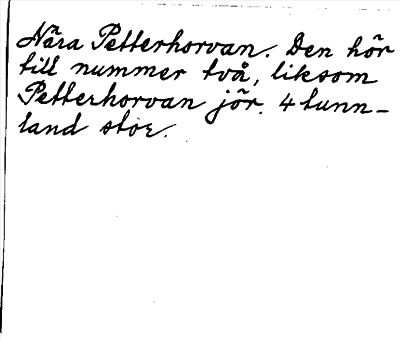 Nära Petterhorvan. Den hör
till nummer två, liksom
Petterhorvan jör. 4 tunn-
land stor.